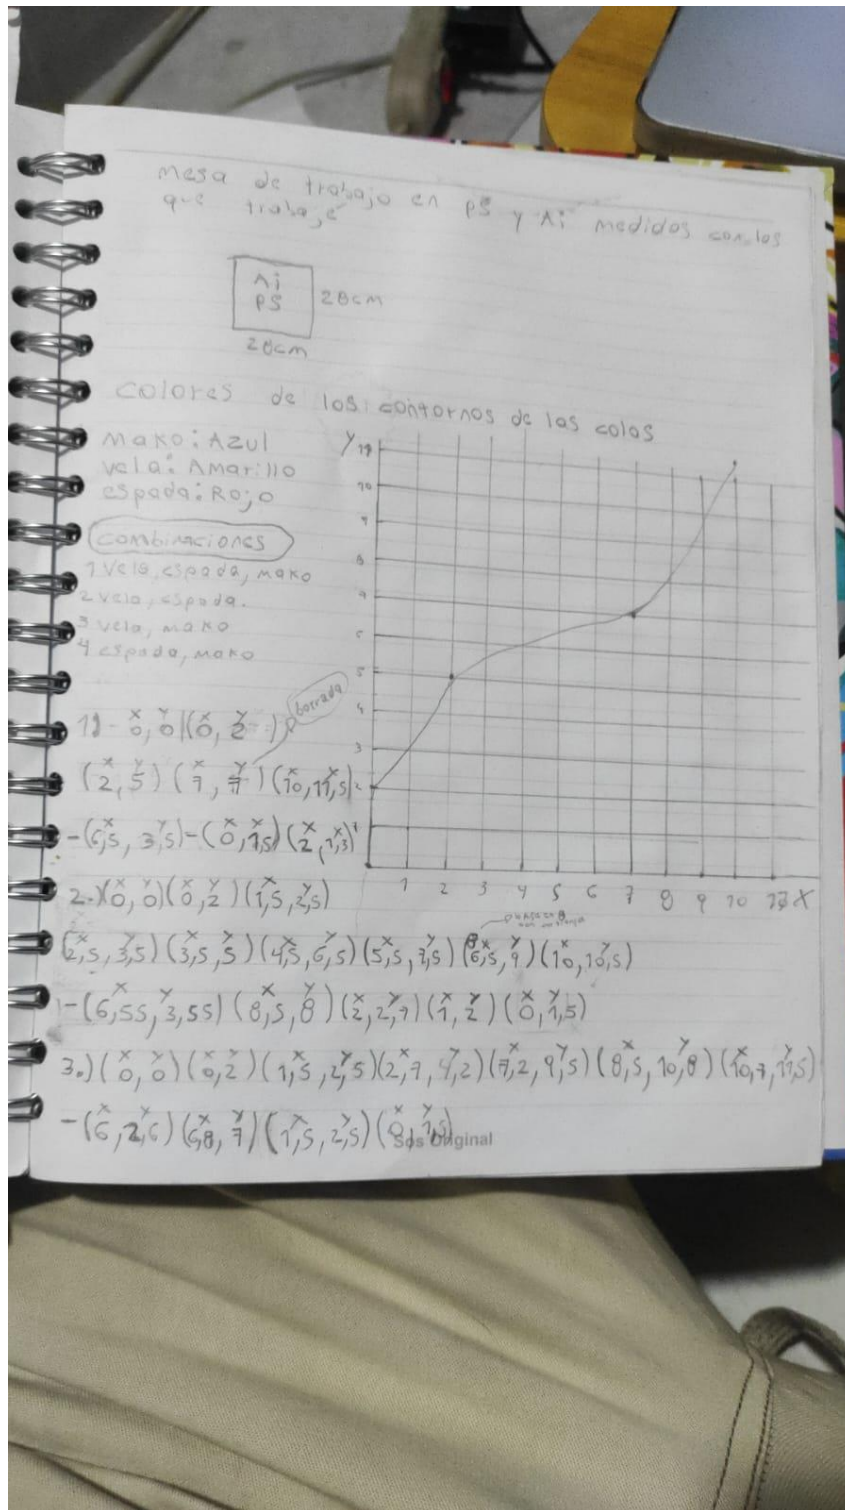 mesa de trabajo en PS y Ai medidos con los
que trabajé
Ai
PS
28cm
28cm
colores de los contornos de las colas
mako: Azul
vela: Amarillo
espada: Rojo
combinaciones
1 vela, espada, mako
2 vela, espada.
3 vela, mako
4 espada, mako
Y 11
10
9
8
7
6
5
4
3
2
1
1 2 3 4 5 6 7 8 9 10 X
borrada
1) - 0, 0 | (0, 2)
(2, 5) (7, 7) (10, 11,5)
-(6,5, 3,5) - (0, 1,5) (2, 1,3)
2.) (0, 0) (0, 2) (1,5, 2,5)
(2,5, 3,5) (3,5, 5) (4,5, 6,5) (5,5, 7,5) (6,5, 9) (10, 10,5)
-(6,55, 3,55) (8,5, 8) (2, 2,7) (1, 2) (0, 1,5)
3.) (0, 0) (0, 2) (1,5, 2,5) (2,7, 4,2) (7,2, 9,5) (8,5, 10,8) (10,7, 11,5)
-(6, 2,6) (6,8, 7) (1,5, 2,5) (0, 1,5)
Sds Original